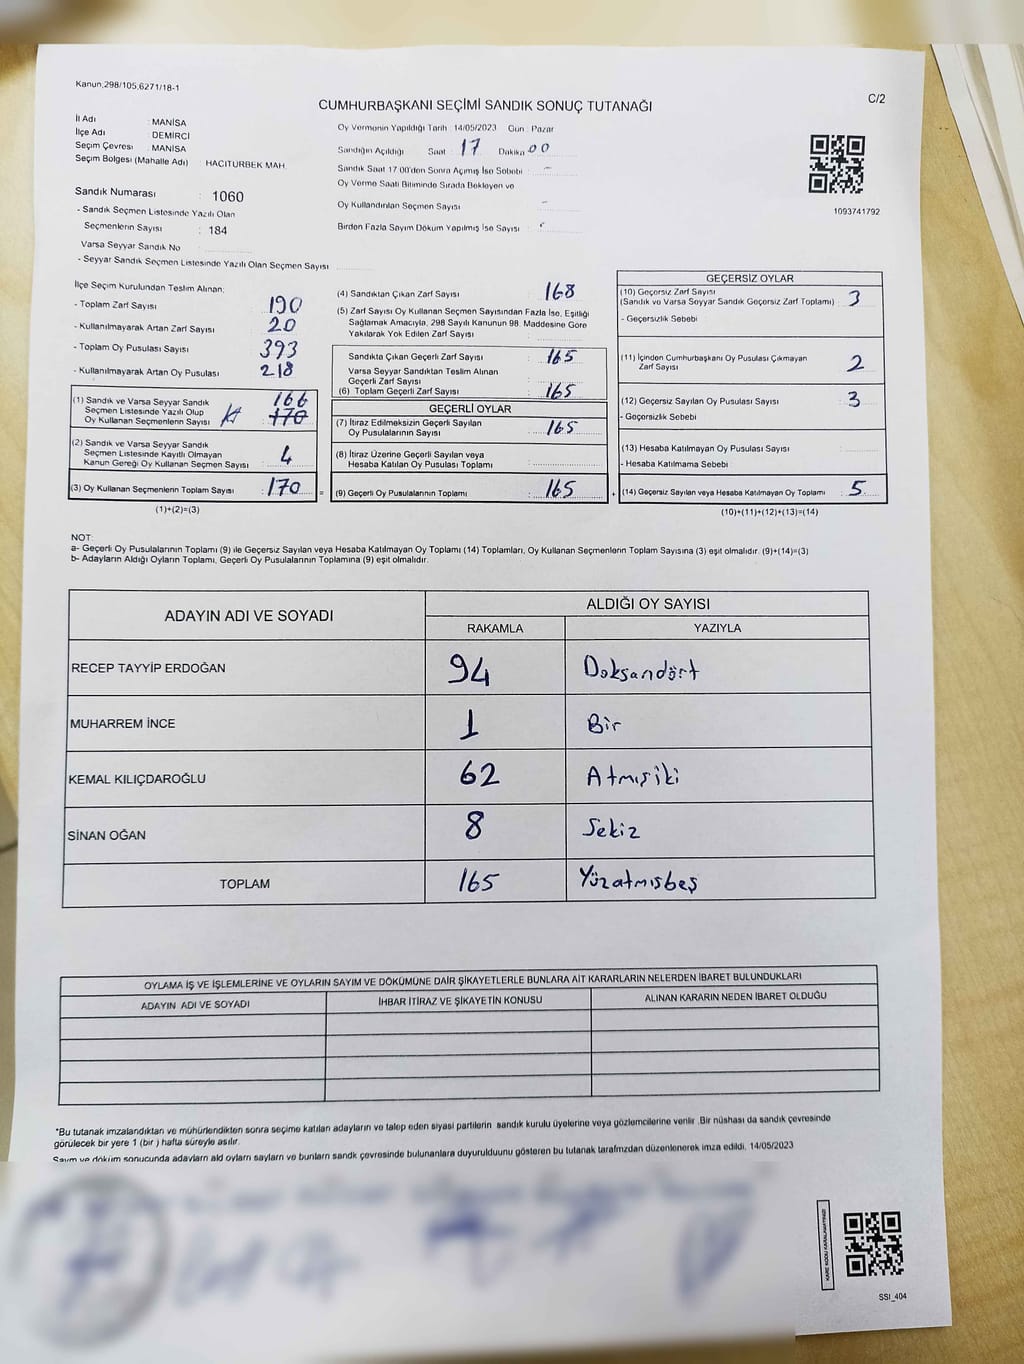 Kanun,298/105,6271/18-1
C/2
CUMHURBAŞKANI SEÇİMİ SANDIK SONUÇ TUTANAĞI
İl Adı : MANİSA
İlçe Adı : DEMİRCİ
Seçim Çevresi : MANİSA
Seçim Bölgesi (Mahalle Adı) : HACITÜRBEK MAH.
Sandık Numarası : 1060
- Sandık Seçmen Listesinde Yazılı Olan
Seçmenlerin Sayısı : 184
Varsa Seyyar Sandık No
- Seyyar Sandık Seçmen Listesinde Yazılı Olan Seçmen Sayısı
Oy Vermenin Yapıldığı Tarih : 14/05/2023 Gün : Pazar
Sandığın Açıldığı Saat 17 Dakika 00
Sandık Saat 17.00'den Sonra Açılmış İse Sebebi : -
Oy Verme Saati Bitiminde Sırada Bekleyen ve
Oy Kullandırılan Seçmen Sayısı -
Birden Fazla Sayım Döküm Yapılmış İse Sayısı
1093741792
İlçe Seçim Kurulundan Teslim Alınan;
- Toplam Zarf Sayısı : 190
- Kullanılmayarak Artan Zarf Sayısı : 20
- Toplam Oy Pusulası Sayısı : 393
- Kullanılmayarak Artan Oy Pusulası : 218
(1) Sandık ve Varsa Seyyar Sandık
Seçmen Listesinde Yazılı Olup
Oy Kullanan Seçmenlerin Sayısı 166 170
(2) Sandık ve Varsa Seyyar Sandık
Seçmen Listesinde Kayıtlı Olmayan
Kanun Gereği Oy Kullanan Seçmen Sayısı : 4
(3) Oy Kullanan Seçmenlerin Toplam Sayısı : 170
=
(1)+(2)=(3)
(4) Sandıktan Çıkan Zarf Sayısı : 168
(5) Zarf Sayısı Oy Kullanan Seçmen Sayısından Fazla İse, Eşitliği
Sağlamak Amacıyla, 298 Sayılı Kanunun 98. Maddesine Göre
Yakılarak Yok Edilen Zarf Sayısı
Sandıkta Çıkan Geçerli Zarf Sayısı : 165
Varsa Seyyar Sandıktan Teslim Alınan
Geçerli Zarf Sayısı
(6) Toplam Geçerli Zarf Sayısı : 165
GEÇERLİ OYLAR
(7) İtiraz Edilmeksizin Geçerli Sayılan
Oy Pusulalarının Sayısı : 165
(8) İtiraz Üzerine Geçerli Sayılan veya
Hesaba Katılan Oy Pusulası Toplamı
(9) Geçerli Oy Pusulalarının Toplamı : 165
+
GEÇERSİZ OYLAR
(10) Geçersiz Zarf Sayısı
(Sandık ve Varsa Seyyar Sandık Geçersiz Zarf Toplamı) : 3
- Geçersizlik Sebebi
(11) İçinden Cumhurbaşkanı Oy Pusulası Çıkmayan
Zarf Sayısı : 2
(12) Geçersiz Sayılan Oy Pusulası Sayısı : 3
- Geçersizlik Sebebi
(13) Hesaba Katılmayan Oy Pusulası Sayısı
- Hesaba Katılmama Sebebi
(14) Geçersiz Sayılan veya Hesaba Katılmayan Oy Toplamı : 5
(10)+(11)+(12)+(13)=(14)
NOT:
a- Geçerli Oy Pusulalarının Toplamı (9) ile Geçersiz Sayılan veya Hesaba Katılmayan Oy Toplamı (14) Toplamları, Oy Kullanan Seçmenlerin Toplam Sayısına (3) eşit olmalıdır. (9)+(14)=(3)
b- Adayların Aldığı Oyların Toplamı, Geçerli Oy Pusulalarının Toplamına (9) eşit olmalıdır.
ADAYIN ADI VE SOYADI
ALDIĞI OY SAYISI
RAKAMLA YAZIYLA
RECEP TAYYİP ERDOĞAN 94 Doksandört
MUHARREM İNCE 1 Bir
KEMAL KILIÇDAROĞLU 62 Atmışiki
SİNAN OĞAN 8 Sekiz
TOPLAM 165 Yüzatmışbeş
OYLAMA İŞ VE İŞLEMLERİNE VE OYLARIN SAYIM VE DÖKÜMÜNE DAİR ŞİKAYETLERLE BUNLARA AİT KARARLARIN NELERDEN İBARET BULUNDUKLARI
ADAYIN ADI VE SOYADI İHBAR İTİRAZ VE ŞİKAYETİN KONUSU ALINAN KARARIN NEDEN İBARET OLDUĞU
*Bu tutanak imzalandıktan ve mühürlendikten sonra seçime katılan adayların ve talep eden siyasi partilerin sandık kurulu üyelerine veya gözlemcilerine verilir. Bir nüshası da sandık çevresinde
görülecek bir yere 1 (bir ) hafta süreyle asılır.
Sayım ve döküm sonucunda adayların ald oyların sayların ve bunların sandk çevresinde bulunanlara duyurulduunu gösteren bu tutanak tarafmzdan düzenlenerek imza edildi. 14/05/2023
SSI_404